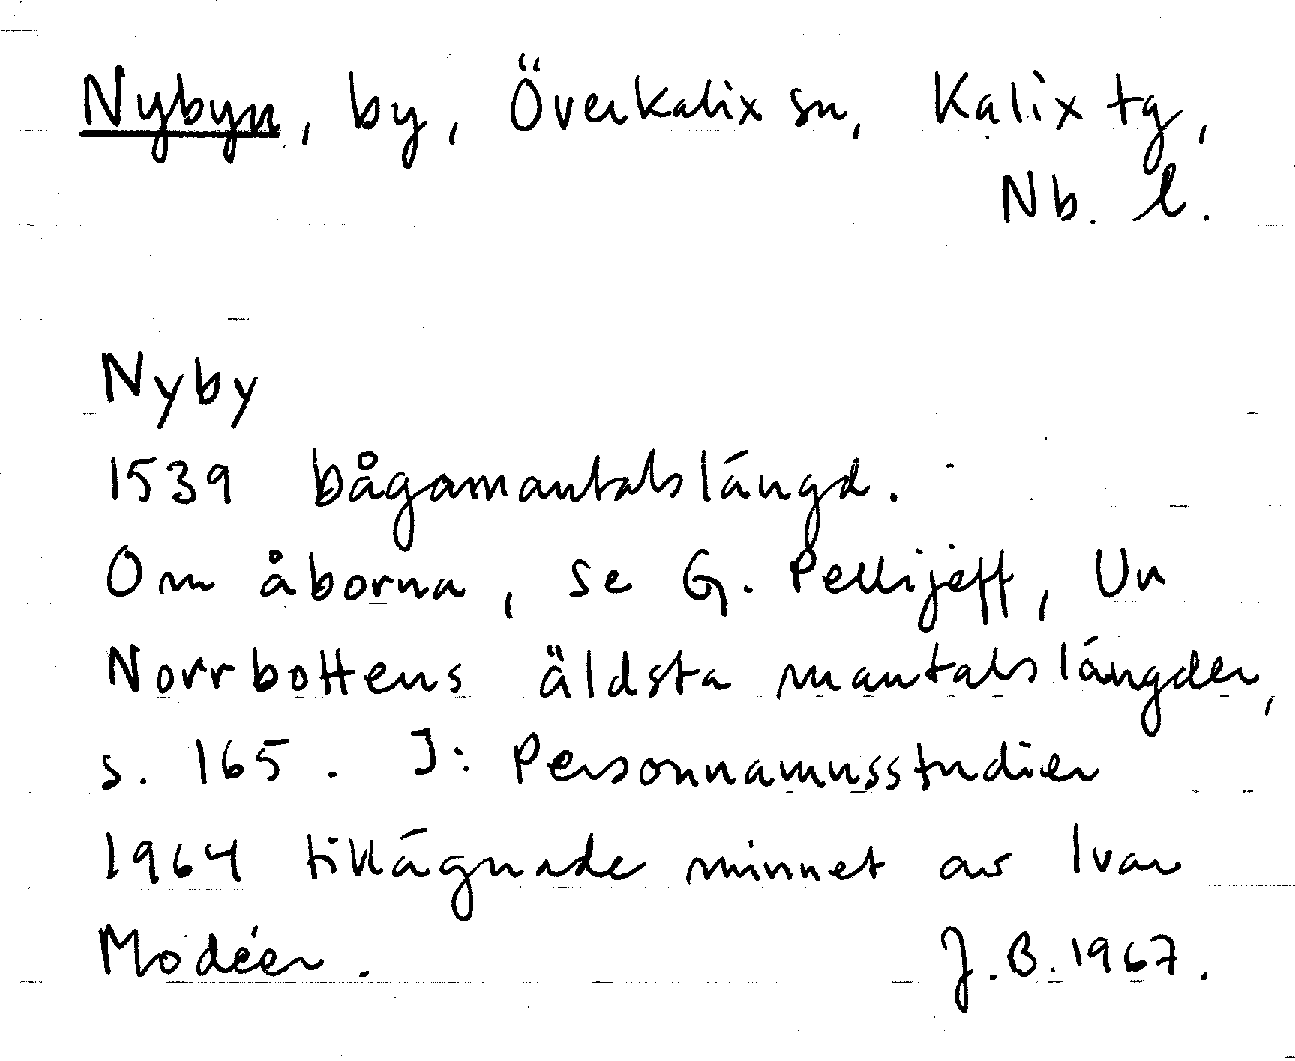 Nybyn, by, Överkalix sn, Kalix tg,
Nb. l.
Nyby
1539 bågamantalslängd.
Om åborna, se G. Pellijeff, Ur
Norrbottens äldsta mantalslängder,
s. 165. I: Personnamnsstudier
1964 tillägnade minnet av Ivar
Modéer. J.B. 1967.